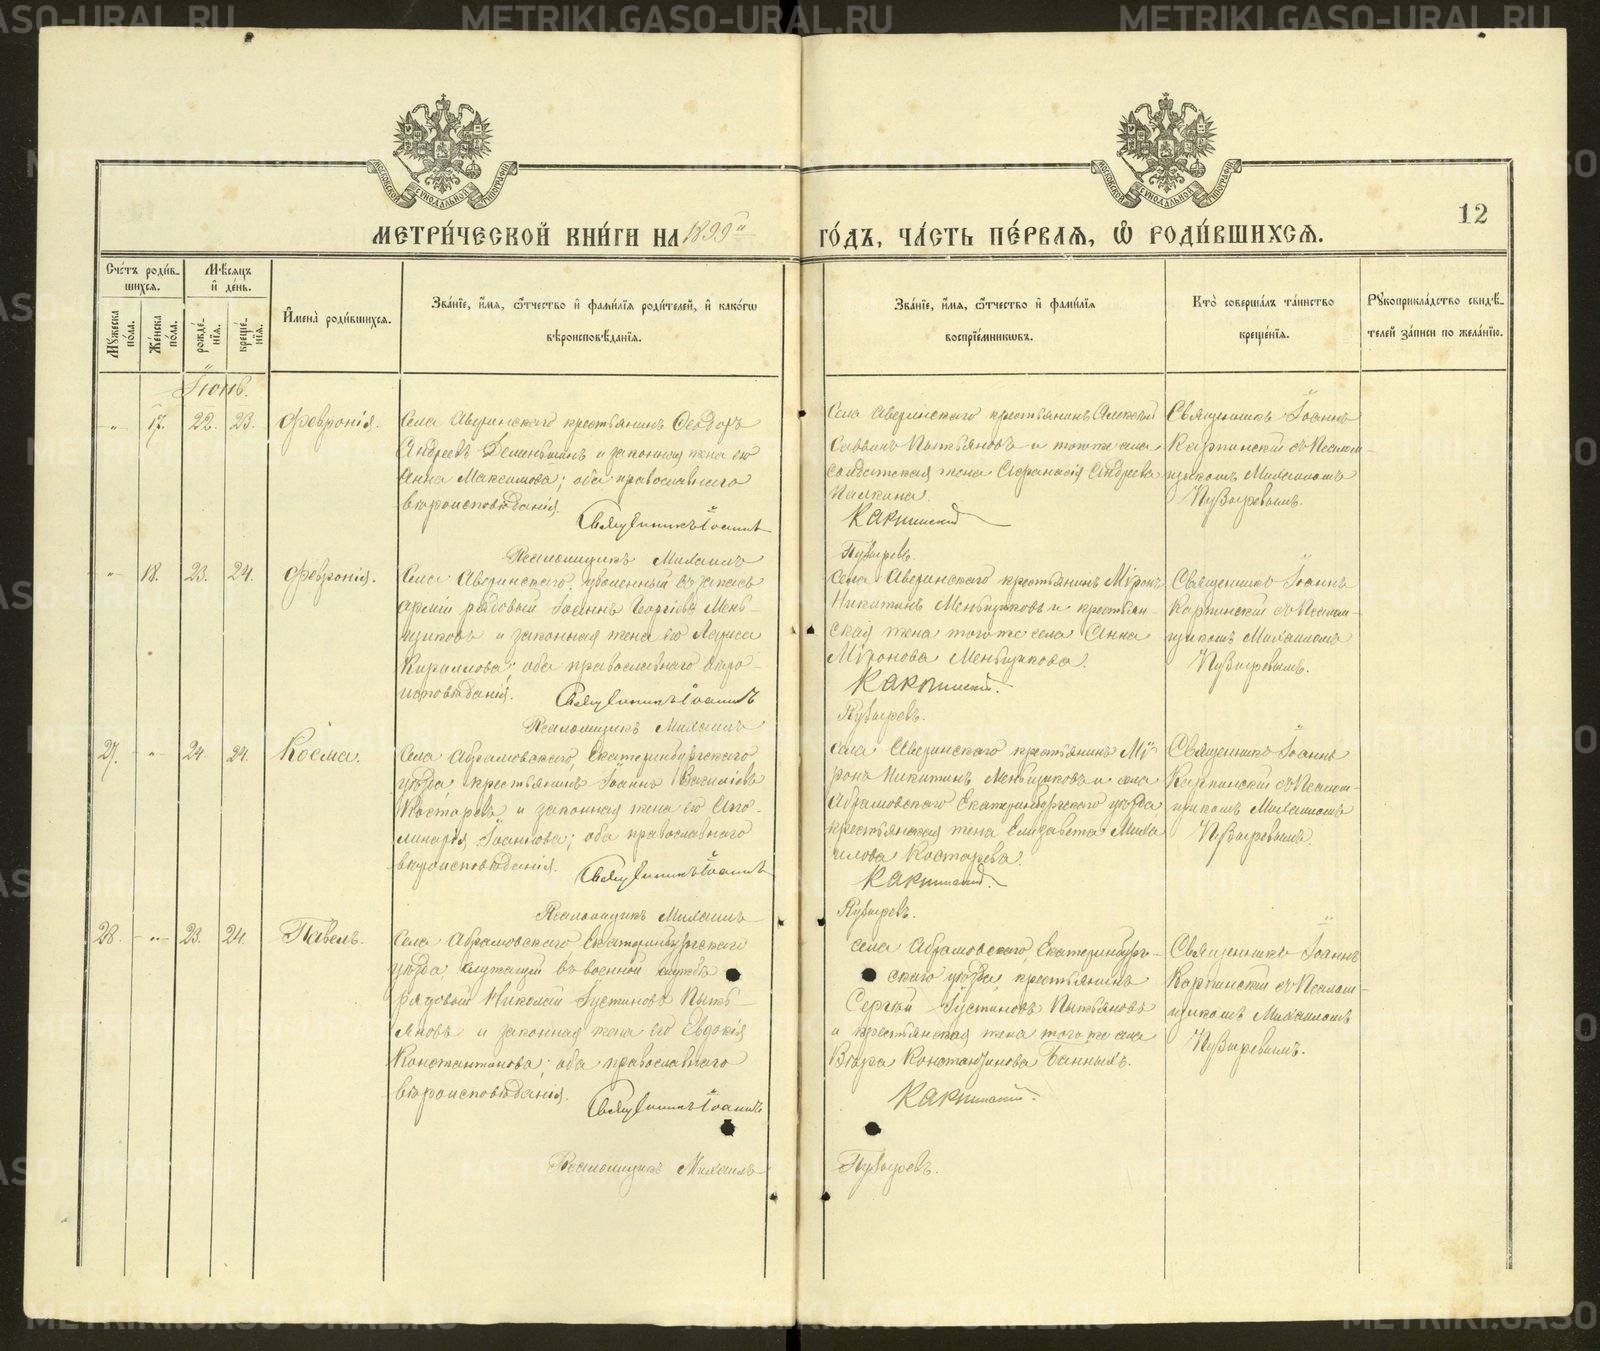 METRIKI.GASO-URAL.RU
МОСКОВСКОЙ СѴНОДАЛЬНОЙ ТИПОГРАФІИ
МОСКОВСКОЙ СѴНОДАЛЬНОЙ ТИПОГРАФІИ
12
МЕТРИ́ЧЕСКОЙ КНИ́ГИ НА 1899й ГО́ДЪ, ЧА́СТЬ ПЕ́РВАѦ, Ѡ РОДИ́ВШИХСѦ.
Сче́тъ роди́вшихсѧ.
Мꙋжеска пола.
Же́нска по́ла.
Мѣ́сѧцъ и҆ де́нь.
рожде́нїѧ.
креще́нїѧ.
И҆мена̀ роди́вшихсѧ.
Зва́нїе, и҆́мѧ, ѻ҆́тчество и҆ фами́лїѧ роди́телей, и҆ како́гѡ
вѣроисповѣ́данїѧ.
Зва́нїе, и҆́мѧ, ѻ҆́тчество и҆ фами́лїѧ
воспрїе́мникѡвъ.
Кто̀ соверша́лъ та́инство
креще́нїѧ.
Рꙋкоприкла́дство свидѣ́телей за́писи по жела́нїю.
Іюнь.
" 17. 22. 23. Феѵронія.
Села Аверинскаго крестьянинъ Ѳеодоръ
Андреевъ и законная жена его
Анна Максимова; оба православнаго
вѣроисповѣданія.
Священникъ Іоаннъ Карпинскій
Псаломщикъ Михаилъ Пузыревъ.
Села Аверинскаго крестьянинъ Алексѣй
Саввинъ Пытьяновъ и того же села
солдатская жена Аѳанасія Андреева
Палкина.
Священникъ Іоаннъ
Карпинскій съ Псалом-
щикомъ Михаиломъ
Пузыревымъ.
" 18. 23. 24. Феѵронія.
Села Аверинскаго, уволенный въ запасъ
арміи рядовый Іоаннъ Георгіевъ Мень-
щиковъ и законная жена его Лариса
Кириллова; оба православнаго вѣро-
исповѣданія.
Священникъ Іоаннъ Карпинскій.
Псаломщикъ Михаилъ Пузыревъ.
Села Аверинскаго крестьянинъ Міронъ
Никитинъ Меньщиковъ и крестьян-
ская жена того же села Анна
Міронова Меньщикова.
Священникъ Іоаннъ
Карпинскій съ Псалом-
щикомъ Михаиломъ
Пузыревымъ.
27. " 24 24. Косма.
Села Абрамовскаго, Екатеринбургскаго
уѣзда, крестьянинъ Іоаннъ Василіевъ
Костаревъ и законная жена его Апо-
линарія Іоаннова; оба православнаго
вѣроисповѣданія.
Священникъ Іоаннъ Карпинскій.
Псаломщикъ Михаилъ Пузыревъ.
Села Аверинскаго крестьянинъ Мі-
ронъ Никитинъ Меньщиковъ и села
Абрамовскаго Екатеринбургскаго уѣзда
крестьянская жена Елизавета Миха
илова Костарева.
Священникъ Іоаннъ
Карпинскій съ Псалом-
щикомъ Михаиломъ
Пузыревымъ.
28. " 23. 24. Павелъ.
Села Абрамовскаго Екатеринбургскаго
уѣзда служащій въ военной службѣ
рядовый Николай Іустиновъ Пыть-
яновъ и законная жена его Евдокія
Константинова; оба православнаго
вѣроисповѣданія.
Священникъ Іоаннъ Карпинскій.
Псаломщикъ Михаилъ Пузыревъ.
села Абрамовскаго, Екатеринбург-
скаго уѣзда, крестьянинъ
Сергѣй Іустиновъ Пытьяновъ
и крестьянская жена того же села
Вѣра Константинова Банныхъ.
Священникъ Іоаннъ
Карпинскій съ Псалом-
щикомъ Михаиломъ
Пузыревымъ.